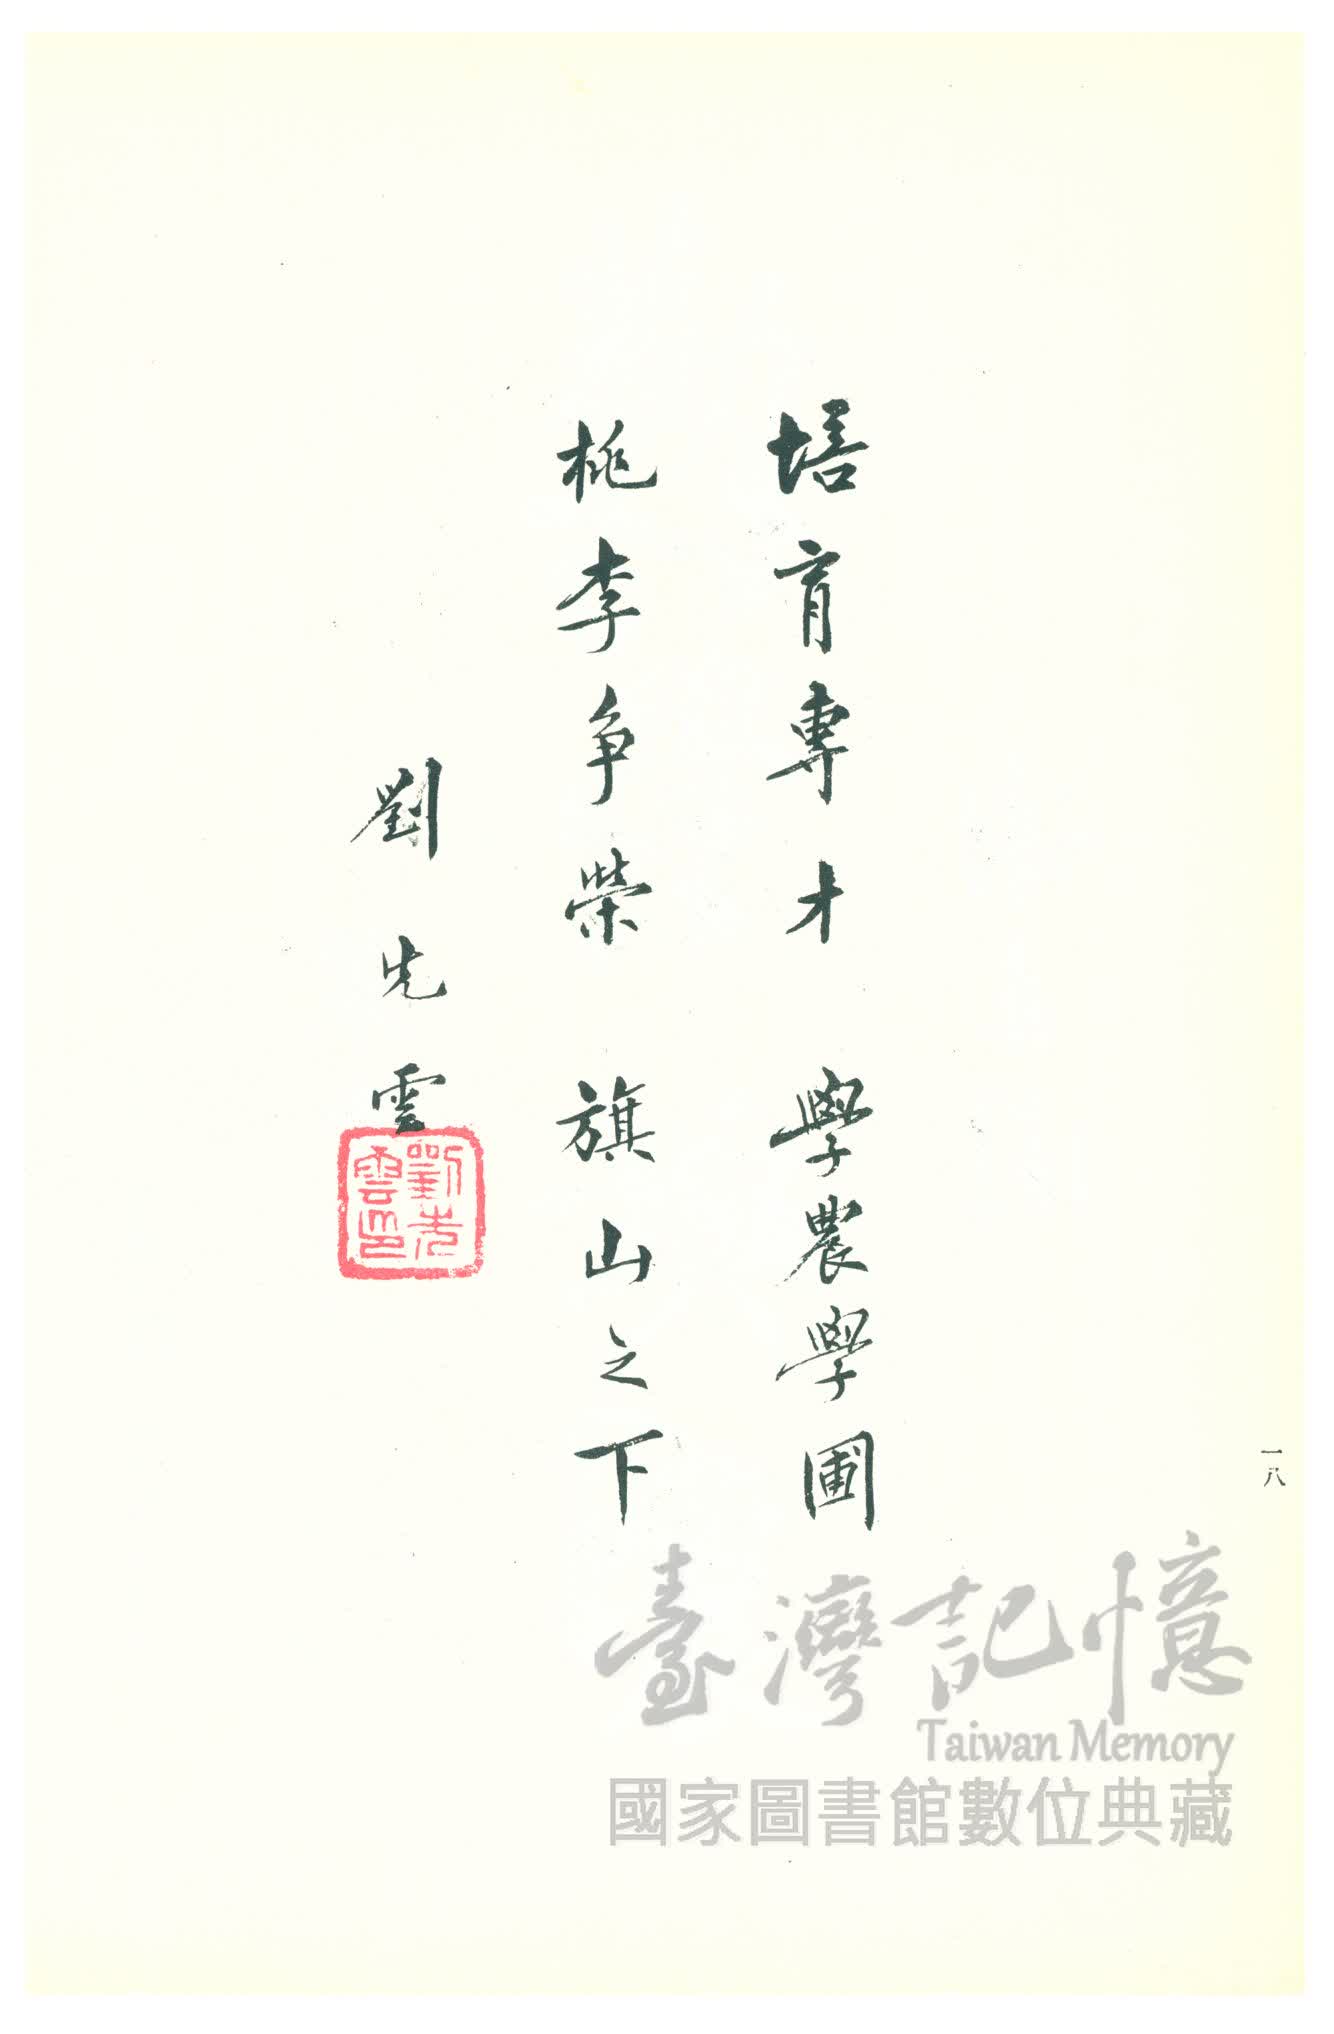 培育專才　學農學圃
桃李爭榮　旗山之下
劉先雲
劉先雲印
一八
臺灣記憶
Taiwan Memory
國家圖書館數位典藏